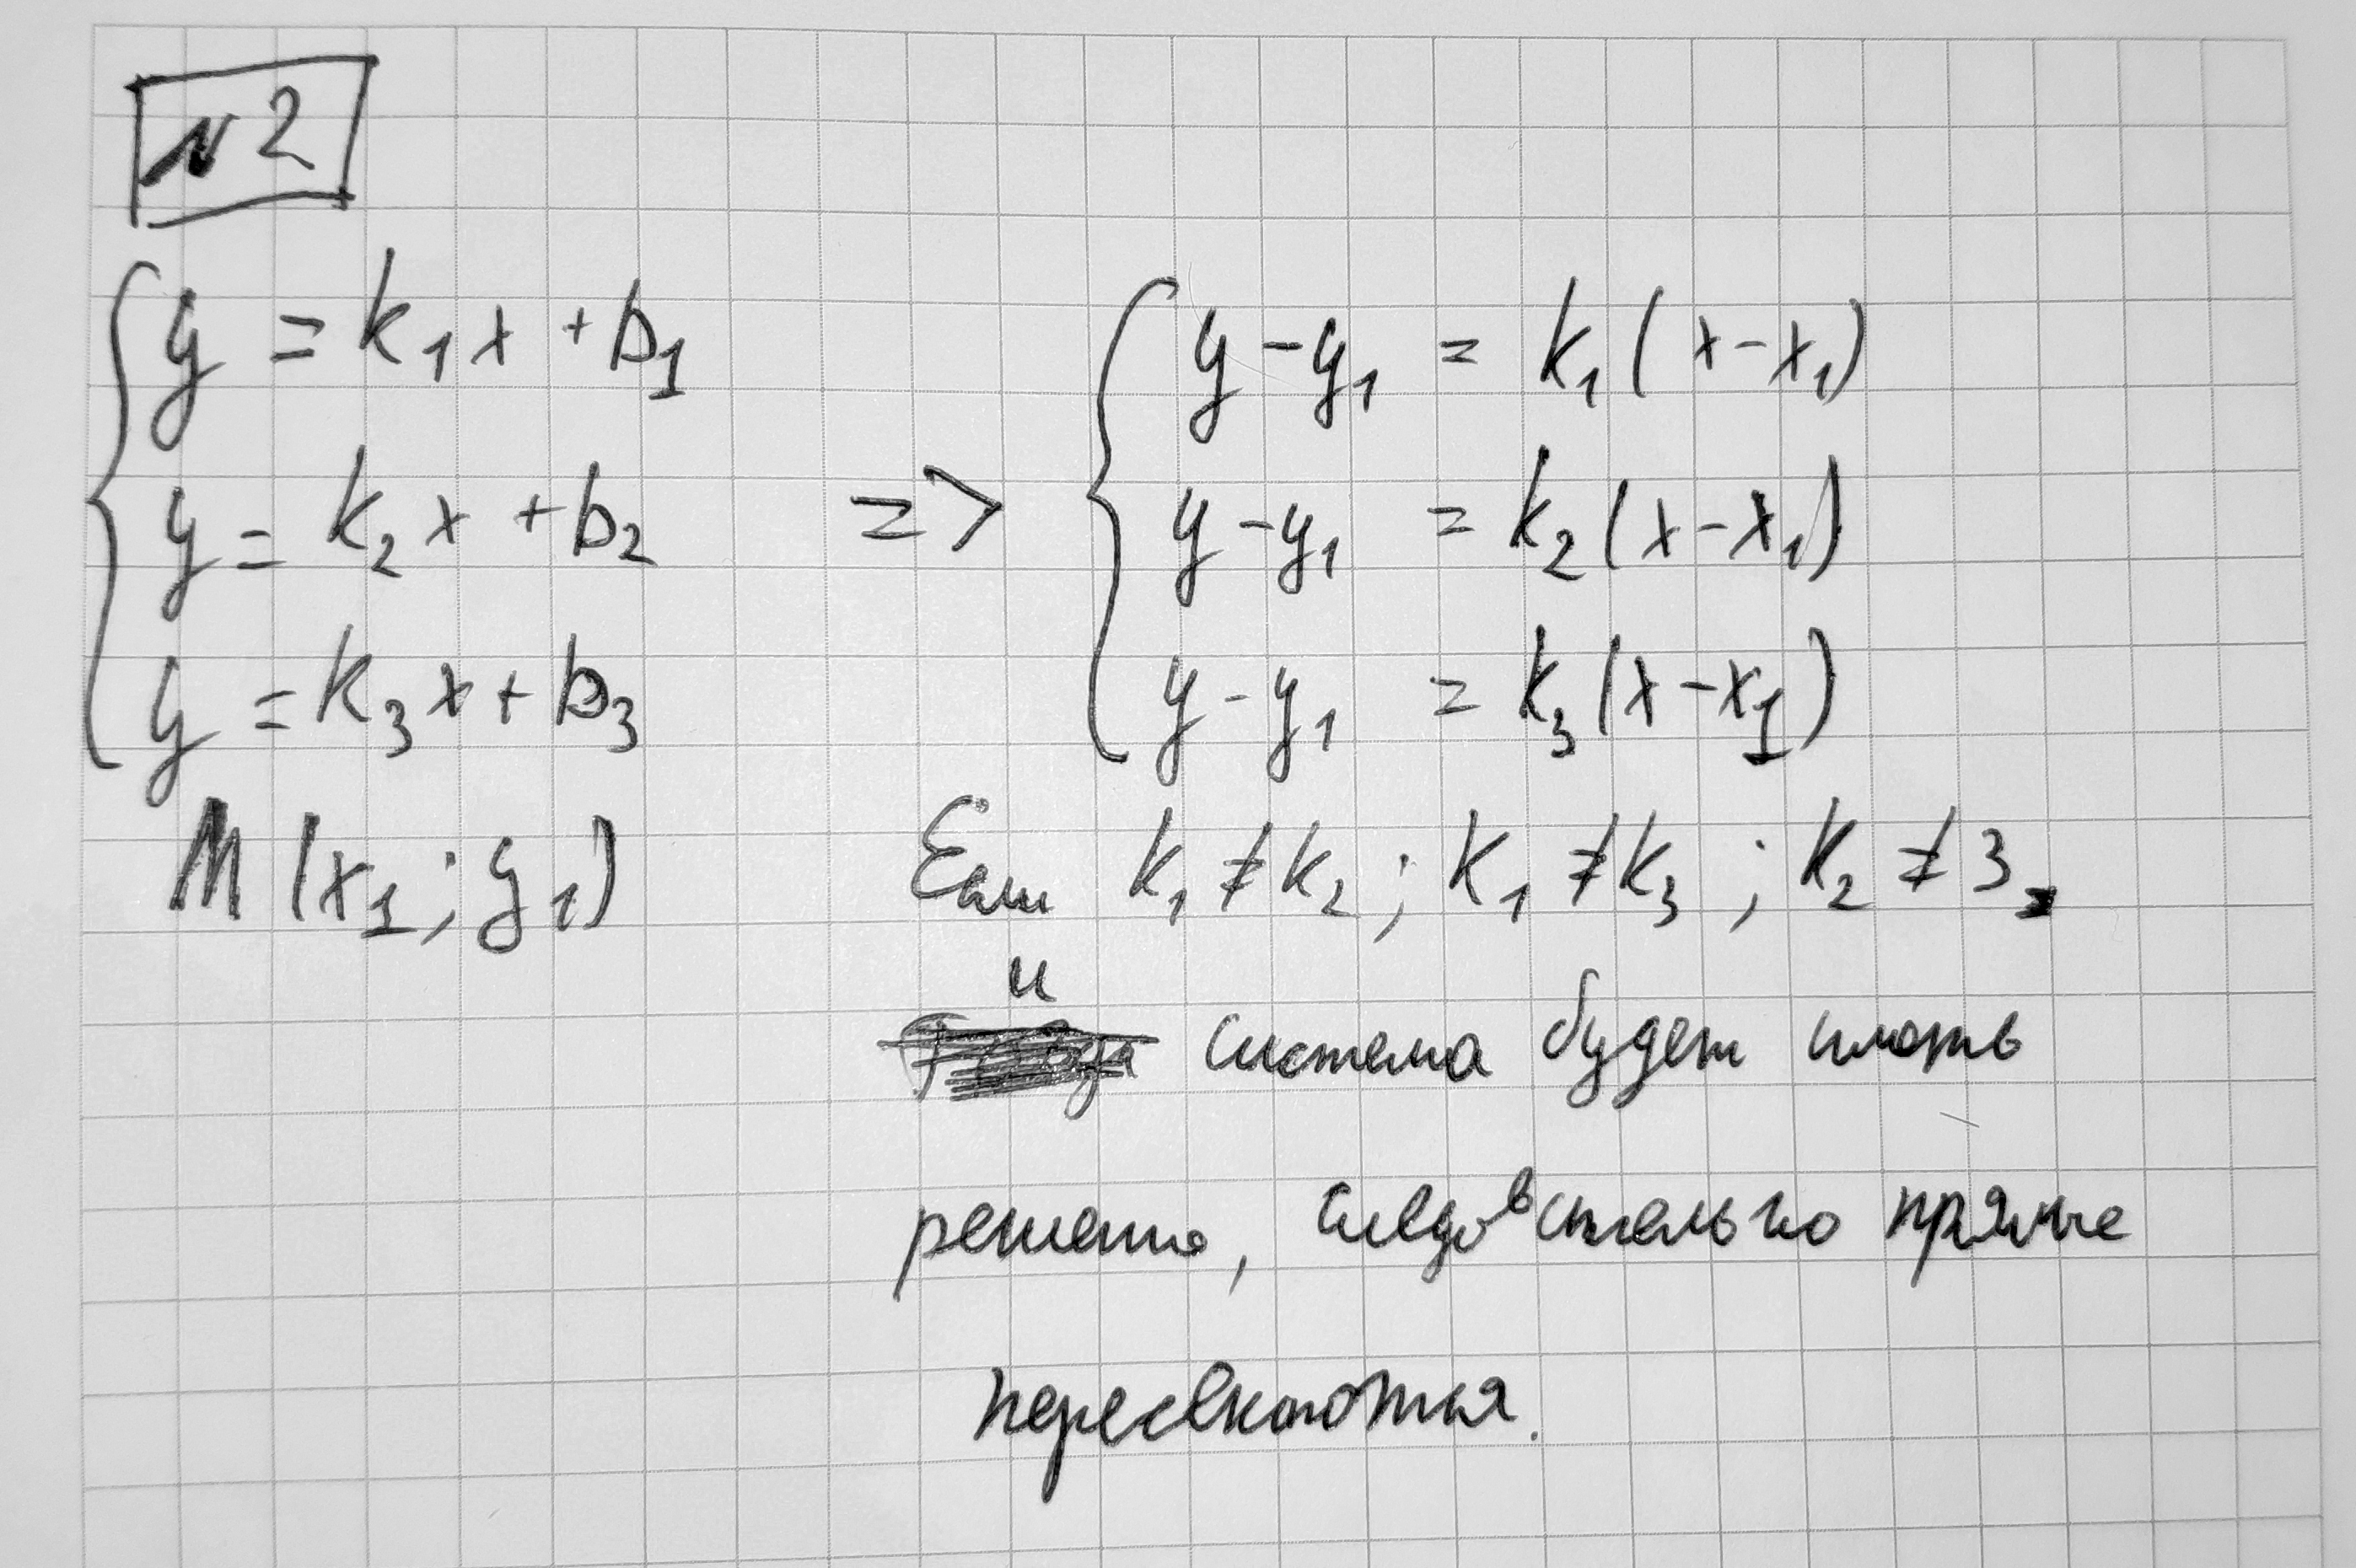 №2
y = k₁x + b₁
y = k₂x + b₂
y = k₃x + b₃
M (x₁; y₁)
=>
y - y₁ = k₁(x - x₁)
y - y₁ = k₂(x - x₁)
y - y₁ = k₃(x - x₁)
Если k₁ ≠ k₂; k₁ ≠ k₃; k₂ ≠ 3
и
система будет иметь
решение, следовательно прямые
пересекаются.